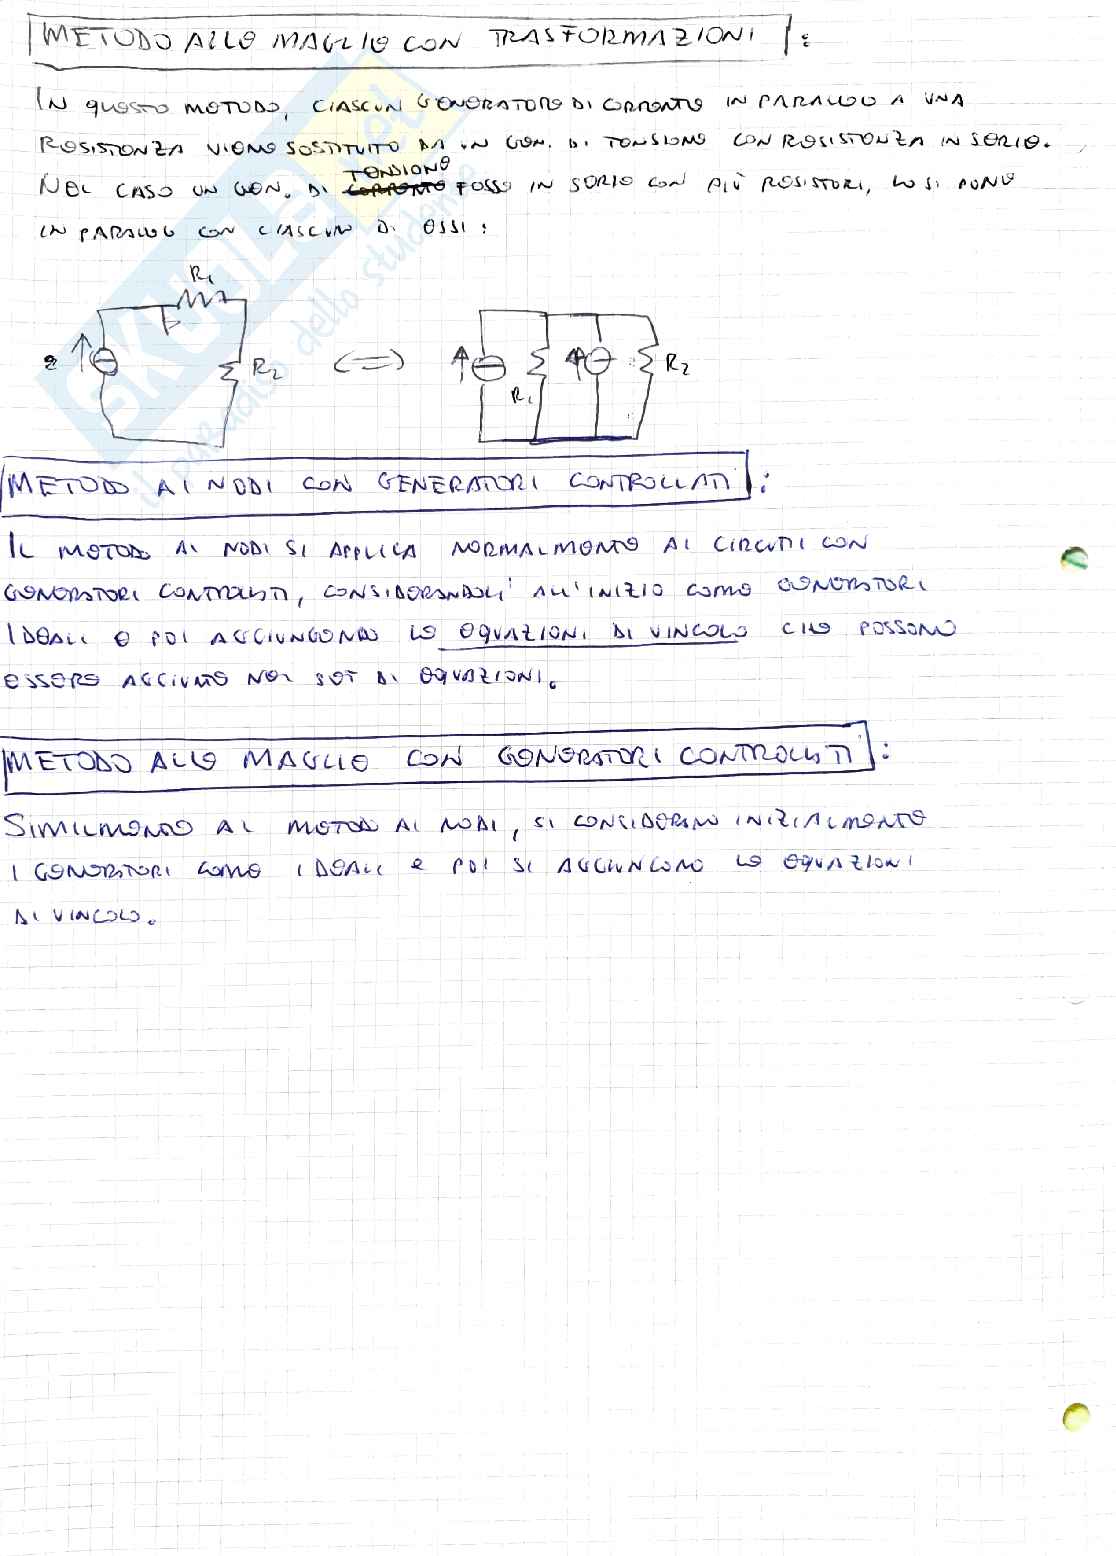 METODO ALLE MAGLIE CON TRASFORMAZIONI :
IN QUESTO METODO, CIASCUN GENERATORE DI CORRENTE IN PARALLELO A UNA
RESISTENZA VIENE SOSTITUITO DA UN GEN. DI TENSIONE CON RESISTENZA IN SERIE.
TENSIONE
NEL CASO UN GEN. DI CORRENTE FOSSE IN SERIE CON PIÙ RESISTORI, LO SI PONE
IN PARALLELO CON CIASCUN DI ESSI :
R1
R2
R1
R2
METODO AI NODI CON GENERATORI CONTROLLATI :
IL METODO AI NODI SI APPLICA NORMALMENTE AI CIRCUITI CON
GENERATORI CONTROLLATI, CONSIDERANDOLI ALL'INIZIO COME GENERATORI
IDEALI E POI AGGIUNGENDO LE EQUAZIONI DI VINCOLO CHE POSSONO
ESSERE AGGIUNTE NEL SET DI EQUAZIONI.
METODO ALLE MAGLIE CON GENERATORI CONTROLLATI :
SIMILMENTE AL METODO AI NODI, SI CONSIDERANO INIZIALMENTE
I GENERATORI COME IDEALI E POI SI AGGIUNGONO LE EQUAZIONI
DI VINCOLO.
SKUOLA.net
il paradiso dello studente